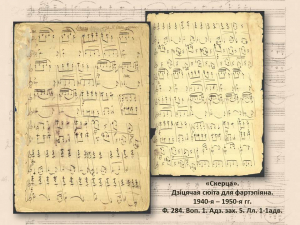 «Скерца».
Дзіцячая сюіта для фартэпіяна.
1940-я – 1950-я гг.
Ф. 284. Воп. 1. Адз. зах. 5. Лл. 1-1адв.